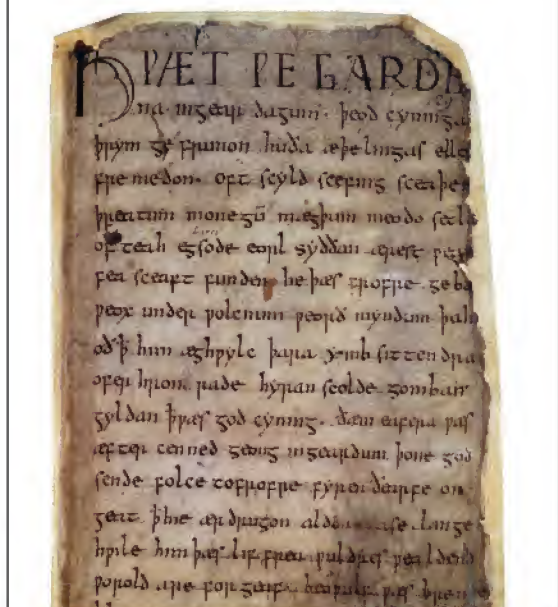 HǷÆT ǷE GARDE
na ingear dagum · þeod cyninga
þrym ge frunon huða æþelingas elle
fremedon · oft scyld scefing sceaþen
þreatum monegū mægþum meodo setla
of teah egsode eorl syððan ærest ƿear
fea sceaft funden he þæs frofre geba
ƿeox under ƿolcnum ƿeorð myndum þah
oð ꝥ him æghƿylc þara ymb sittendra
ofer hron rade hyran scolde gomban
gyldan ꝥ ƿæs god cyning · ðæm eafera ƿæs
æfter cenned geong in geardum þone god
sende folce tofrofre fyren ðearfe on
geat ꝥ hie ær drugon aldor ase · lange
hƿile him þæs lif frea ƿuldres ƿealdend
ƿorold are for geaf · beoƿulf ƿæs breme